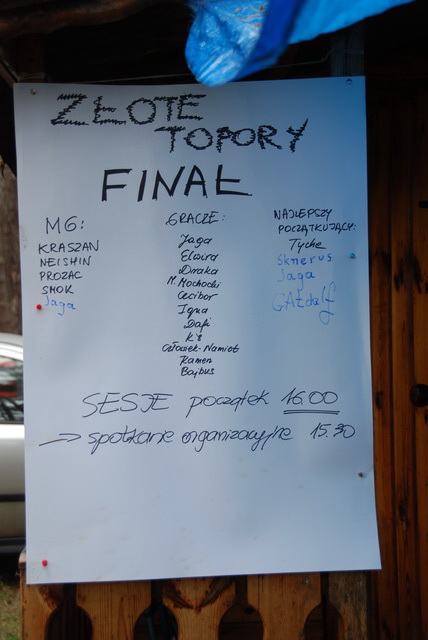 ZŁOTE
TOPORY
FINAŁ
MG:
KRASZAN
NEISHIN
PROZAC
SMOK
Jaga
GRACZE:
Jaga
Elwira
Draka
M. Mochocki
Cecibor
Igna
Dafi
K8
Człowiek-Namiot
Kamen
Bajbus
NAJLEPSZY
POCZĄTKUJĄCY:
Tyche
Sknerus
Jaga
GAŁdalf
SESJE początek 16.00
→ spotkanie organizacyjne 15.30